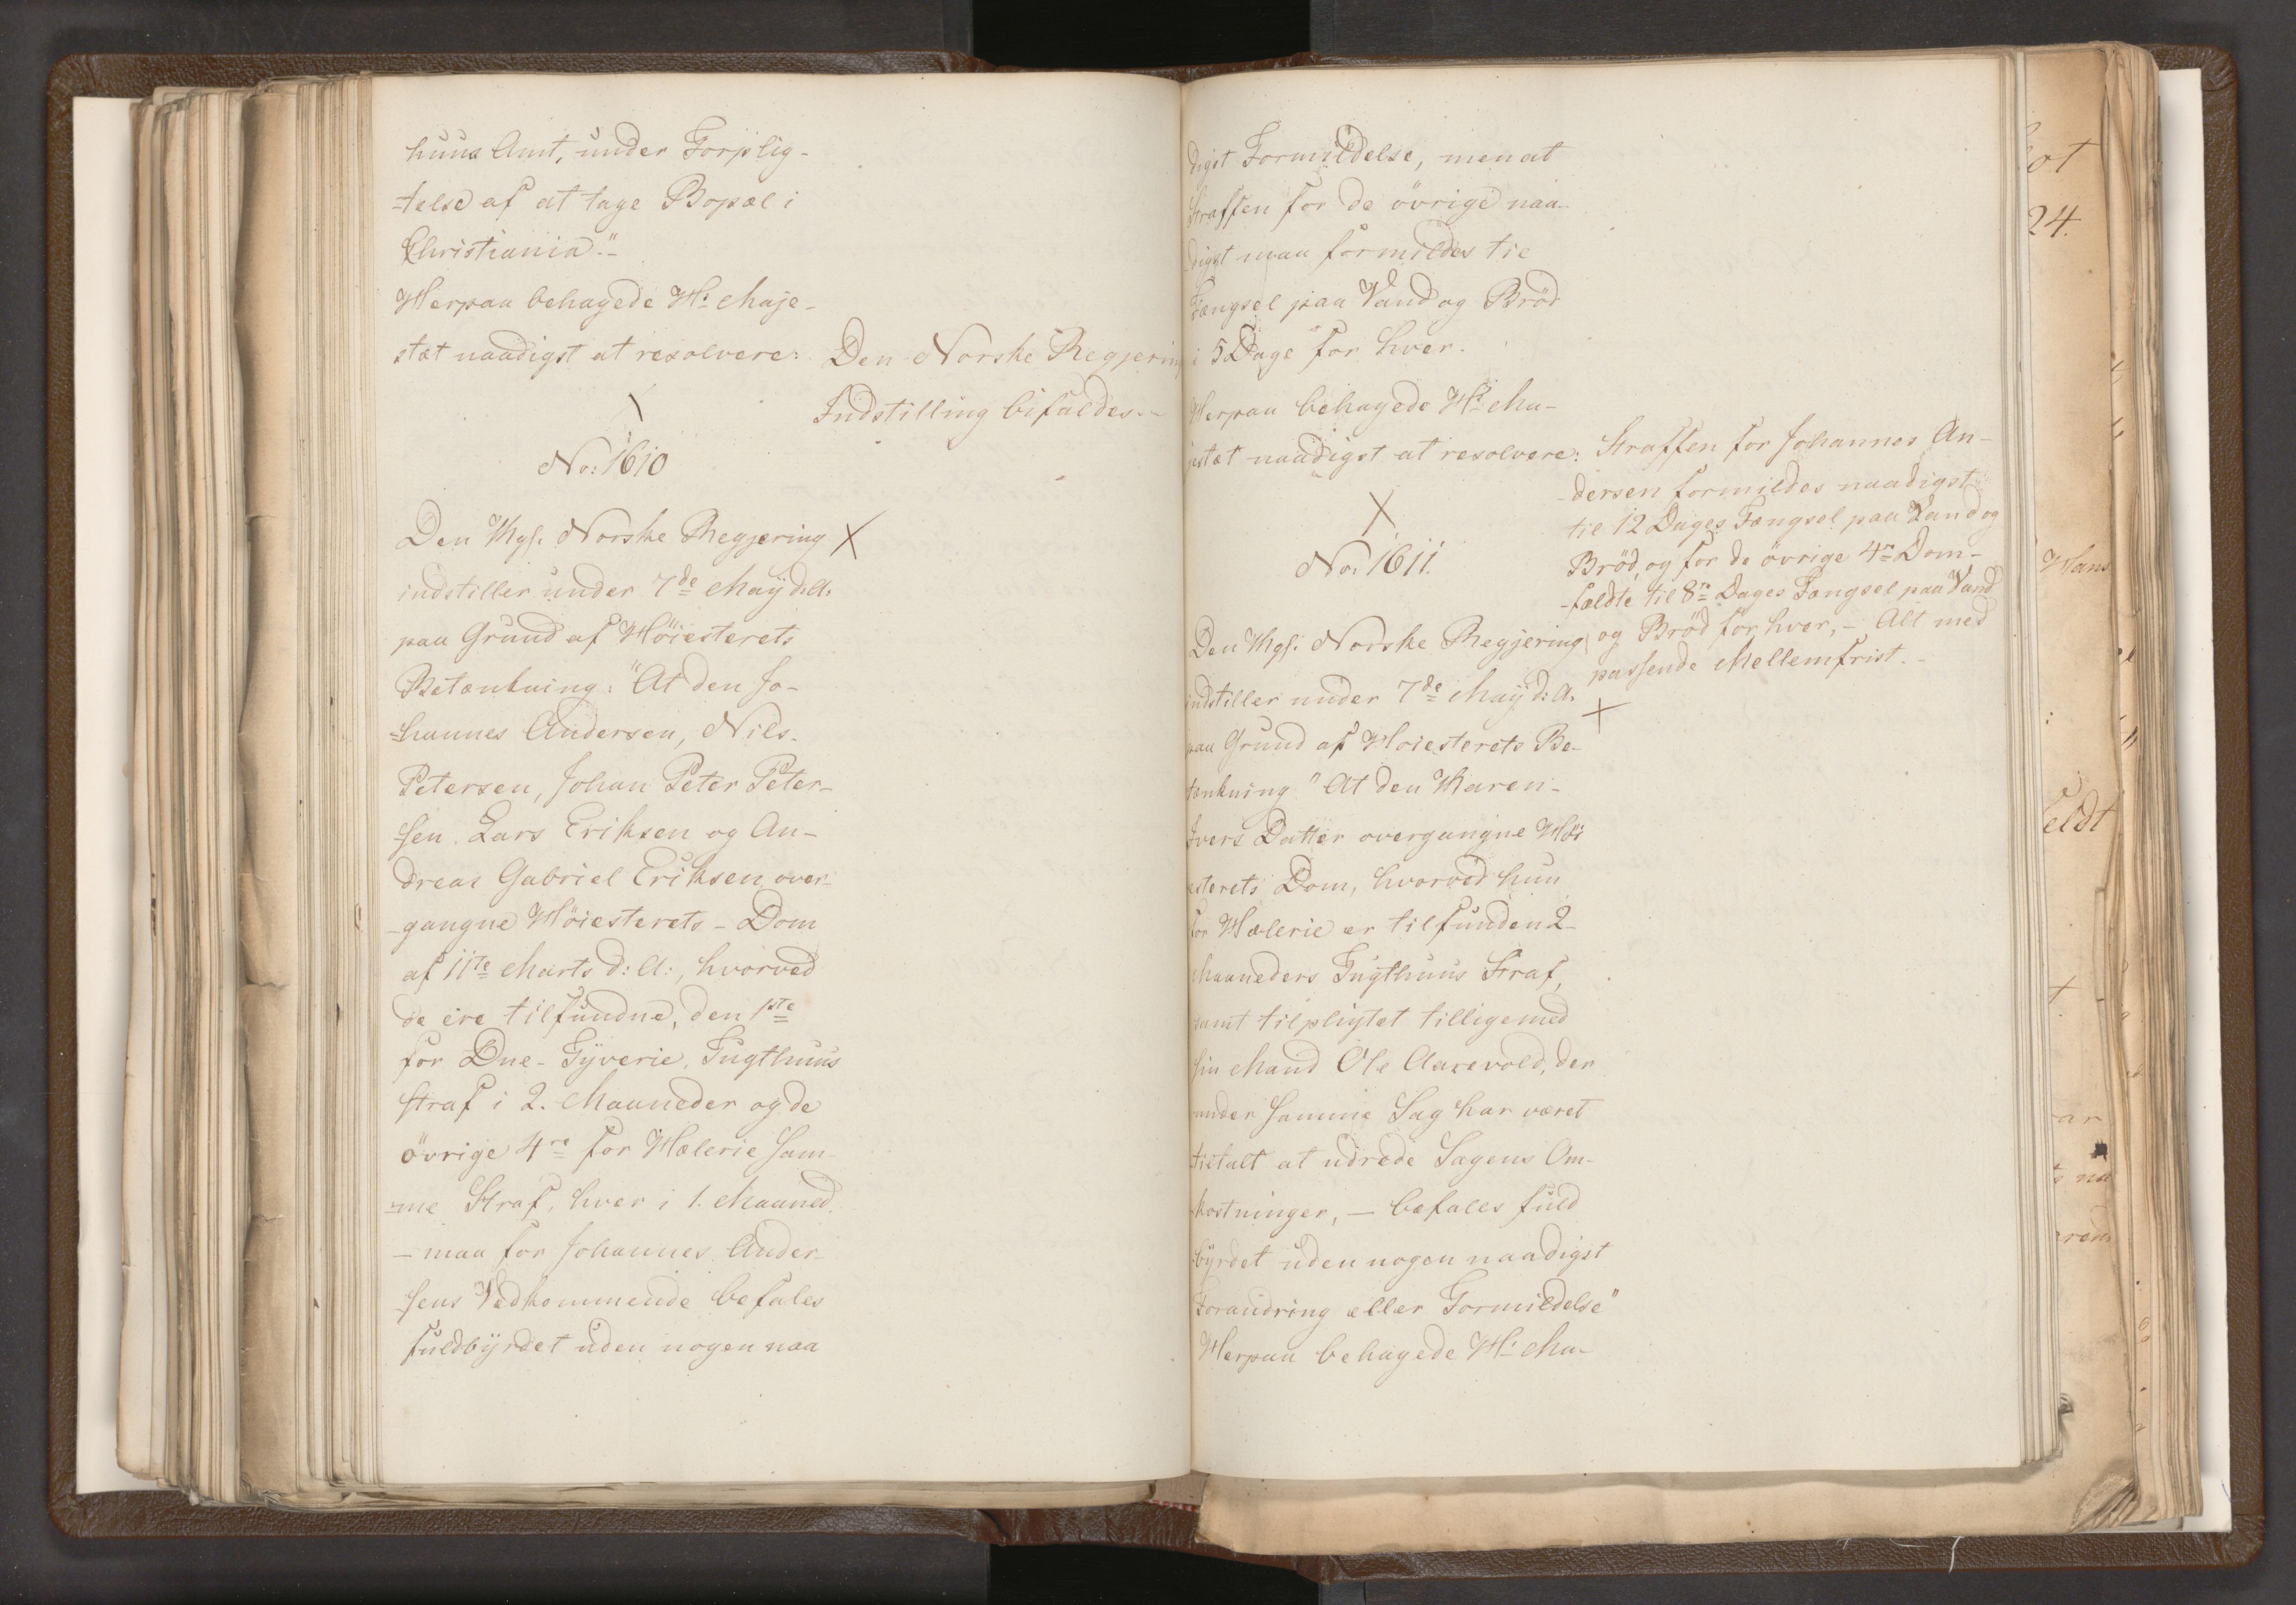 huus Amt, under Forplig-
-telse af at tage Bopæl i
Christiania."-
Herpaa behagede Hs Maje-
stæt naadigst at resolvere:
Den Norske Regjering
Indstilling bifaldes.-
No: 1610
Den Kgl. Norske Regjering
indstiller under 7de May d:A:
paa Grund af Höiesterets
Betænkning: "At den Jo-
-hannes Andersen, Nils
Petersen, Johan Peter Peter-
sen, Lars Eriksen og An-
dreas Gabriel Eriksen over-
-gangne Höiesterets-Dom
af 11te Marts d:A:, hvorved
de ere tilfundne, den 1ste
for Due-Tÿverie, Tugthuus
straf i 2. Maaneder og de
övrige 4re for Hælerie sam-
-me Straf, hver i 1. Maaned,
- maa for Johannes Ander-
sens Vedkommende befales
fuldbÿrdet uden nogen naa
digst Formildelse, men at
Straffen for de övrige naa-
digst maa formildes til
Fængsel paa Vand og Bröd
i 5 Dage for hver.
Herpaa behagede Hs Ma-
jestæt naadigst at resolvere:
Straffen for Johannes An-
-dersen formildes naadigst
til 12 Dages Fængsel paa Vand og
Bröd, og for de övrige 4re Dom-
-fældte til 8te Dages Fængsel paa Vand
og Bröd for hver, - Alt med
passende Mellemfrist.-
No: 1611.
Den Kgl. Norske Regjering
indstiller under 7de May d:A.
paa Grund af Höiesterets Be-
tænkning "At den Karen
Ivers Datter overgangne Höi
esterets Dom, hvorved hun
for Hælerie er tilfunden 2
Maaneders Tugthuus Straf,
samt tilpligtet tilligemed
sin Mand Ole Aarevold, der
under samme Sag har været
tiltalt at udrede Sagens Om-
kostninger, - befales fuld
bÿrdet uden nogen naadigst
Forandring eller Formildelse"
Herpaa behagede Hs Ma-
24.
Hans